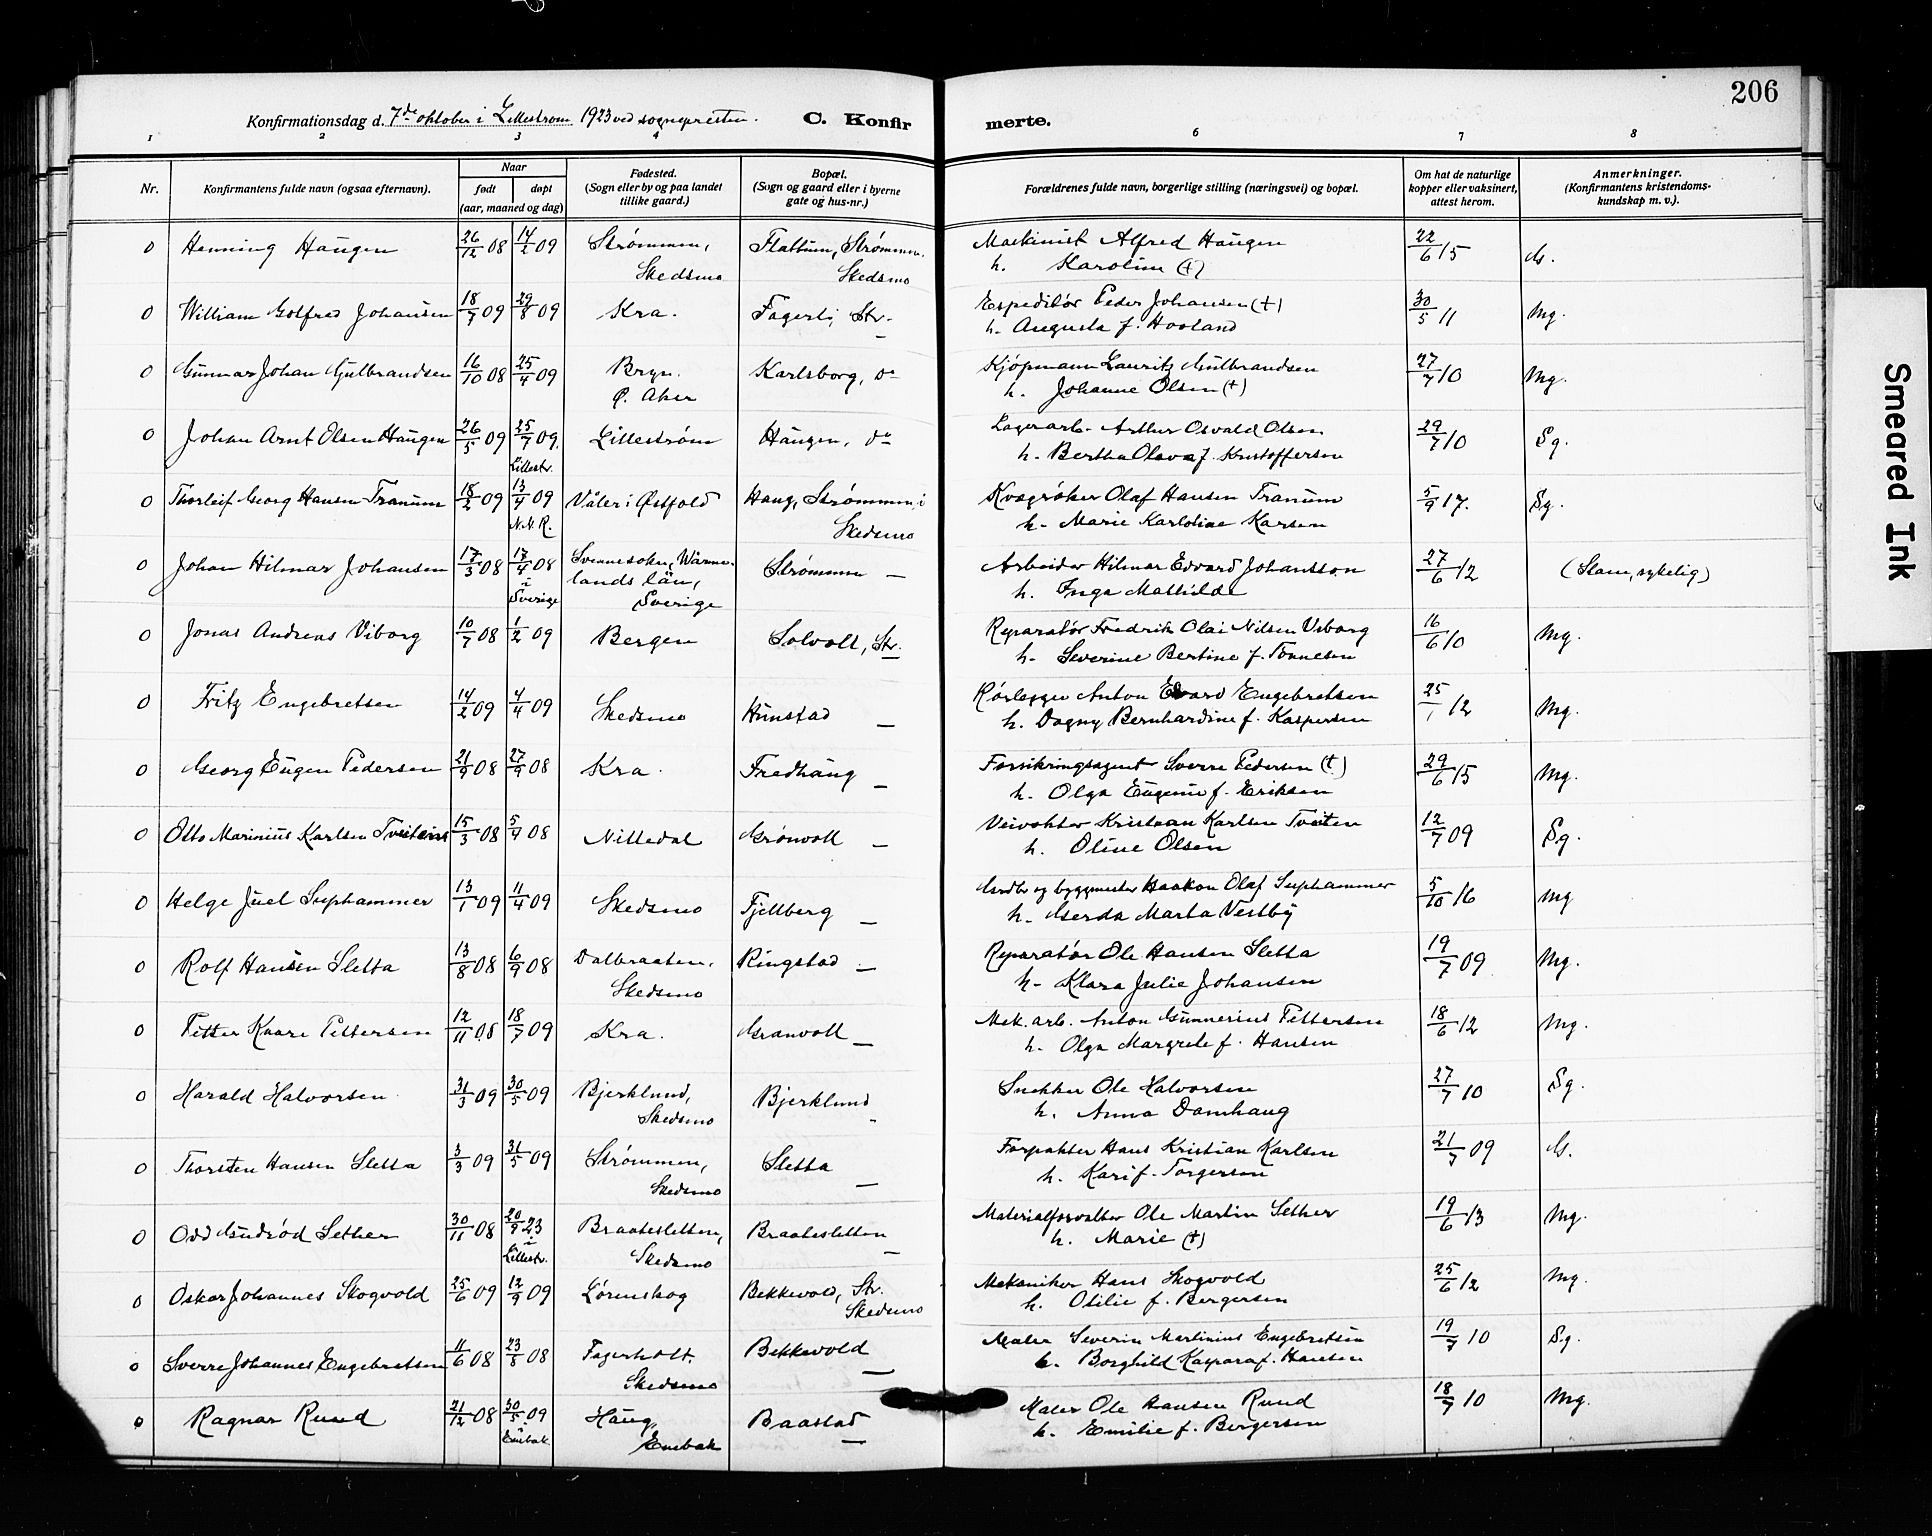 206
Konfirmationsdag d. 7de oktober i Lillestrøm 1923 ved sognepresten. C. Konfirmerte.
1 2 3 4 6 7 8
Nr. Konfirmantens fulde navn (ogsaa efternavn). Naar født døpt (aar, maaned og dag) Fødested. (Sogn eller by og paa landet tillike gaard.) Bopæl. (Sogn og gaard eller i byerne gate og hus-nr.) Forældrenes fulde navn, borgerlige stilling (næringsvei) og bopæl. Om hat de naturlige kopper eller vaksinert, attest herom. Anmerkninger. (Konfirmantens kristendomskundskap m. v.).
0 Henning Haugen 26/12 08 14/2 09 Strømmen, Skedsmo Flattum, Strømmen, Skedsmo Maskinist Alfred Haugen 22/6 15 G.
h. Karoline (+)
0 William Gotfred Johansen 18/7 09 29/8 09 Kra. Fagerli, Str. Expeditør Peder Johansen (+) 30/5 11 Mg.
h. Augusta f. Hovland
0 Gunnar Johan Gulbrandsen 16/10 08 25/4 09 Bryn. Ø. Aker Karlsborg, do Kjøpmann Lauritz Gulbrandsen 27/7 10 Mg.
h. Johanne Olsen (+)
0 Johan Arnt Olsen Haugen 26/5 09 25/7 09. Lillestr. Lillestrøm Haugen, do Lagerarb. Arthur Osvald Olsen 29/7 10 Sg.
h. Bertha Olava f. Kristoffersen
0 Thorleif Georg Hansen Tranum 18/2 09 13/4 09 N.N.R. Våler i Østfold Haug, Strømmen i Skedsmo Kvægrøkter Olaf Hansen Tranum 5/9 17. Sg.
h. Marie Karloline Karsen
0 Johan Hilmar Johansen 17/3 08 17/4 08 i Sverige Svennesokn, Wärmelands län, Sverige Strømmen — Arbeider Hilmar Edvard Johansson 27/6 12 (Slam, sykelig)
h. Inga Mathilde
0 Jonas Andreas Viborg 10/7 08 1/2 09 Bergen Solvoll, Str. Reparatør Fredrik Olai Nilsen Viborg 16/6 10 Mg.
h. Severine Bertine f. Tønnesen
0 Fritz Engebretsen 14/2 09 4/4 09 Skedsmo Hunstad — Rørlegger Anton Edvard Engebretsen 25/1 12 Mg.
h. Dagny Bernhardine f. Kaspersen
0 Georg Eugen Pedersen 21/9 08 27/9 08 Kra. Fredhaug — Forsikringsagent Sverre Pedersen (+) 29/6 15 Mg.
h. Olga Eugenie f. Eriksen
0 Otto Marinius Karlsen Tveitens 15/3 08 5/4 08 Nittedal Grønvoll — Veivokter Kristian Karlsen Tveiten 12/7 09 Sg.
h. Oline Olsen
0 Helge Juel Suphammer 13/1 09 11/4 09 Skedsmo Fjellberg — og byggmester Haakon Olaf Suphammer 5/10 16 Mg
h. Gerda Marta Vestby
0 Rolf Hansen Sletta 13/8 08 6/9 08 Dalbraaten, Skedsmo Ringstad — Reparatør Ole Hansen Sletta 19/7 09 Mg.
h. Klara Julie Johansen
0 Petter Kaare Pettersen 12/11 08 18/7 09 Kra. Granvoll — Mek. arb. Anton Gunnerius Pettersen 18/6 12 Mg.
h. Olga Margrete f. Hansen
0 Harald Halvorsen 31/3 09 30/5 09 Bjerklund, Skedsmo Bjerklund Snekker Ole Halvorsen 27/7 10 Sg.
h. Anna Damhaug
0 Thorsten Hansen Sletta 3/3 09 31/5 09 Strømmen, Skedsmo Sletta — Forpakter Hans Kristian Karlsen 21/7 09 G.
h. Kari f. Torgersen
0 Odd Gudrød Sether 30/11 08 20/9 23 i Lillestr. Braatesletten, Skedsmo Braatesletten — Materialforvalter Ole Martin Sether 19/6 13 Mg.
h. Marie (+)
0 Oskar Johannes Skogvold 25/6 09 12/9 09 Lørenskog Bekkevold, Str. Skedsmo Mekaniker Hans Skogvold 25/6 12 Mg.
h. Otilie f. Bergersen
0 Sverre Johannes Engebretsen 11/6 08 23/8 08 Fagerholt, Skedsmo Bekkevold — Maler Severin Martinius Engebretsen 19/7 10 Sg.
h. Borghild Kaspara f. Hansen
0 Ragnar Rund 21/12 08 30/5 09 i Enebak Haug, Enebak Baastad — Maler Ole Hansen Rund 18/7 10 Mg.
h. Emilie f. Bergersen
Smeared Ink